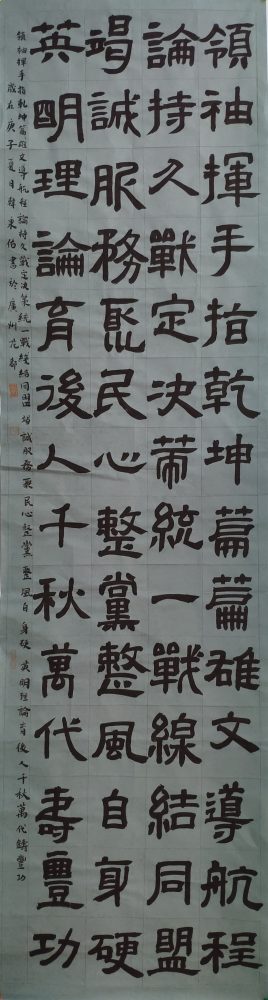 領袖揮手指乾坤篇篇雄文導航程
論持久戰定決策統一戰線結同盟
竭誠服務聚民心整黨整風自身硬
英明理論育後人千秋萬代壽豐功
領袖揮手指乾坤篇篇雄文導航程論持久戰定決策統一戰線結同盟竭誠服務聚民心整黨整風自身硬英明理論育後人千秋萬代鑄豐功
歲在庚子夏月東伯書於廣州花都